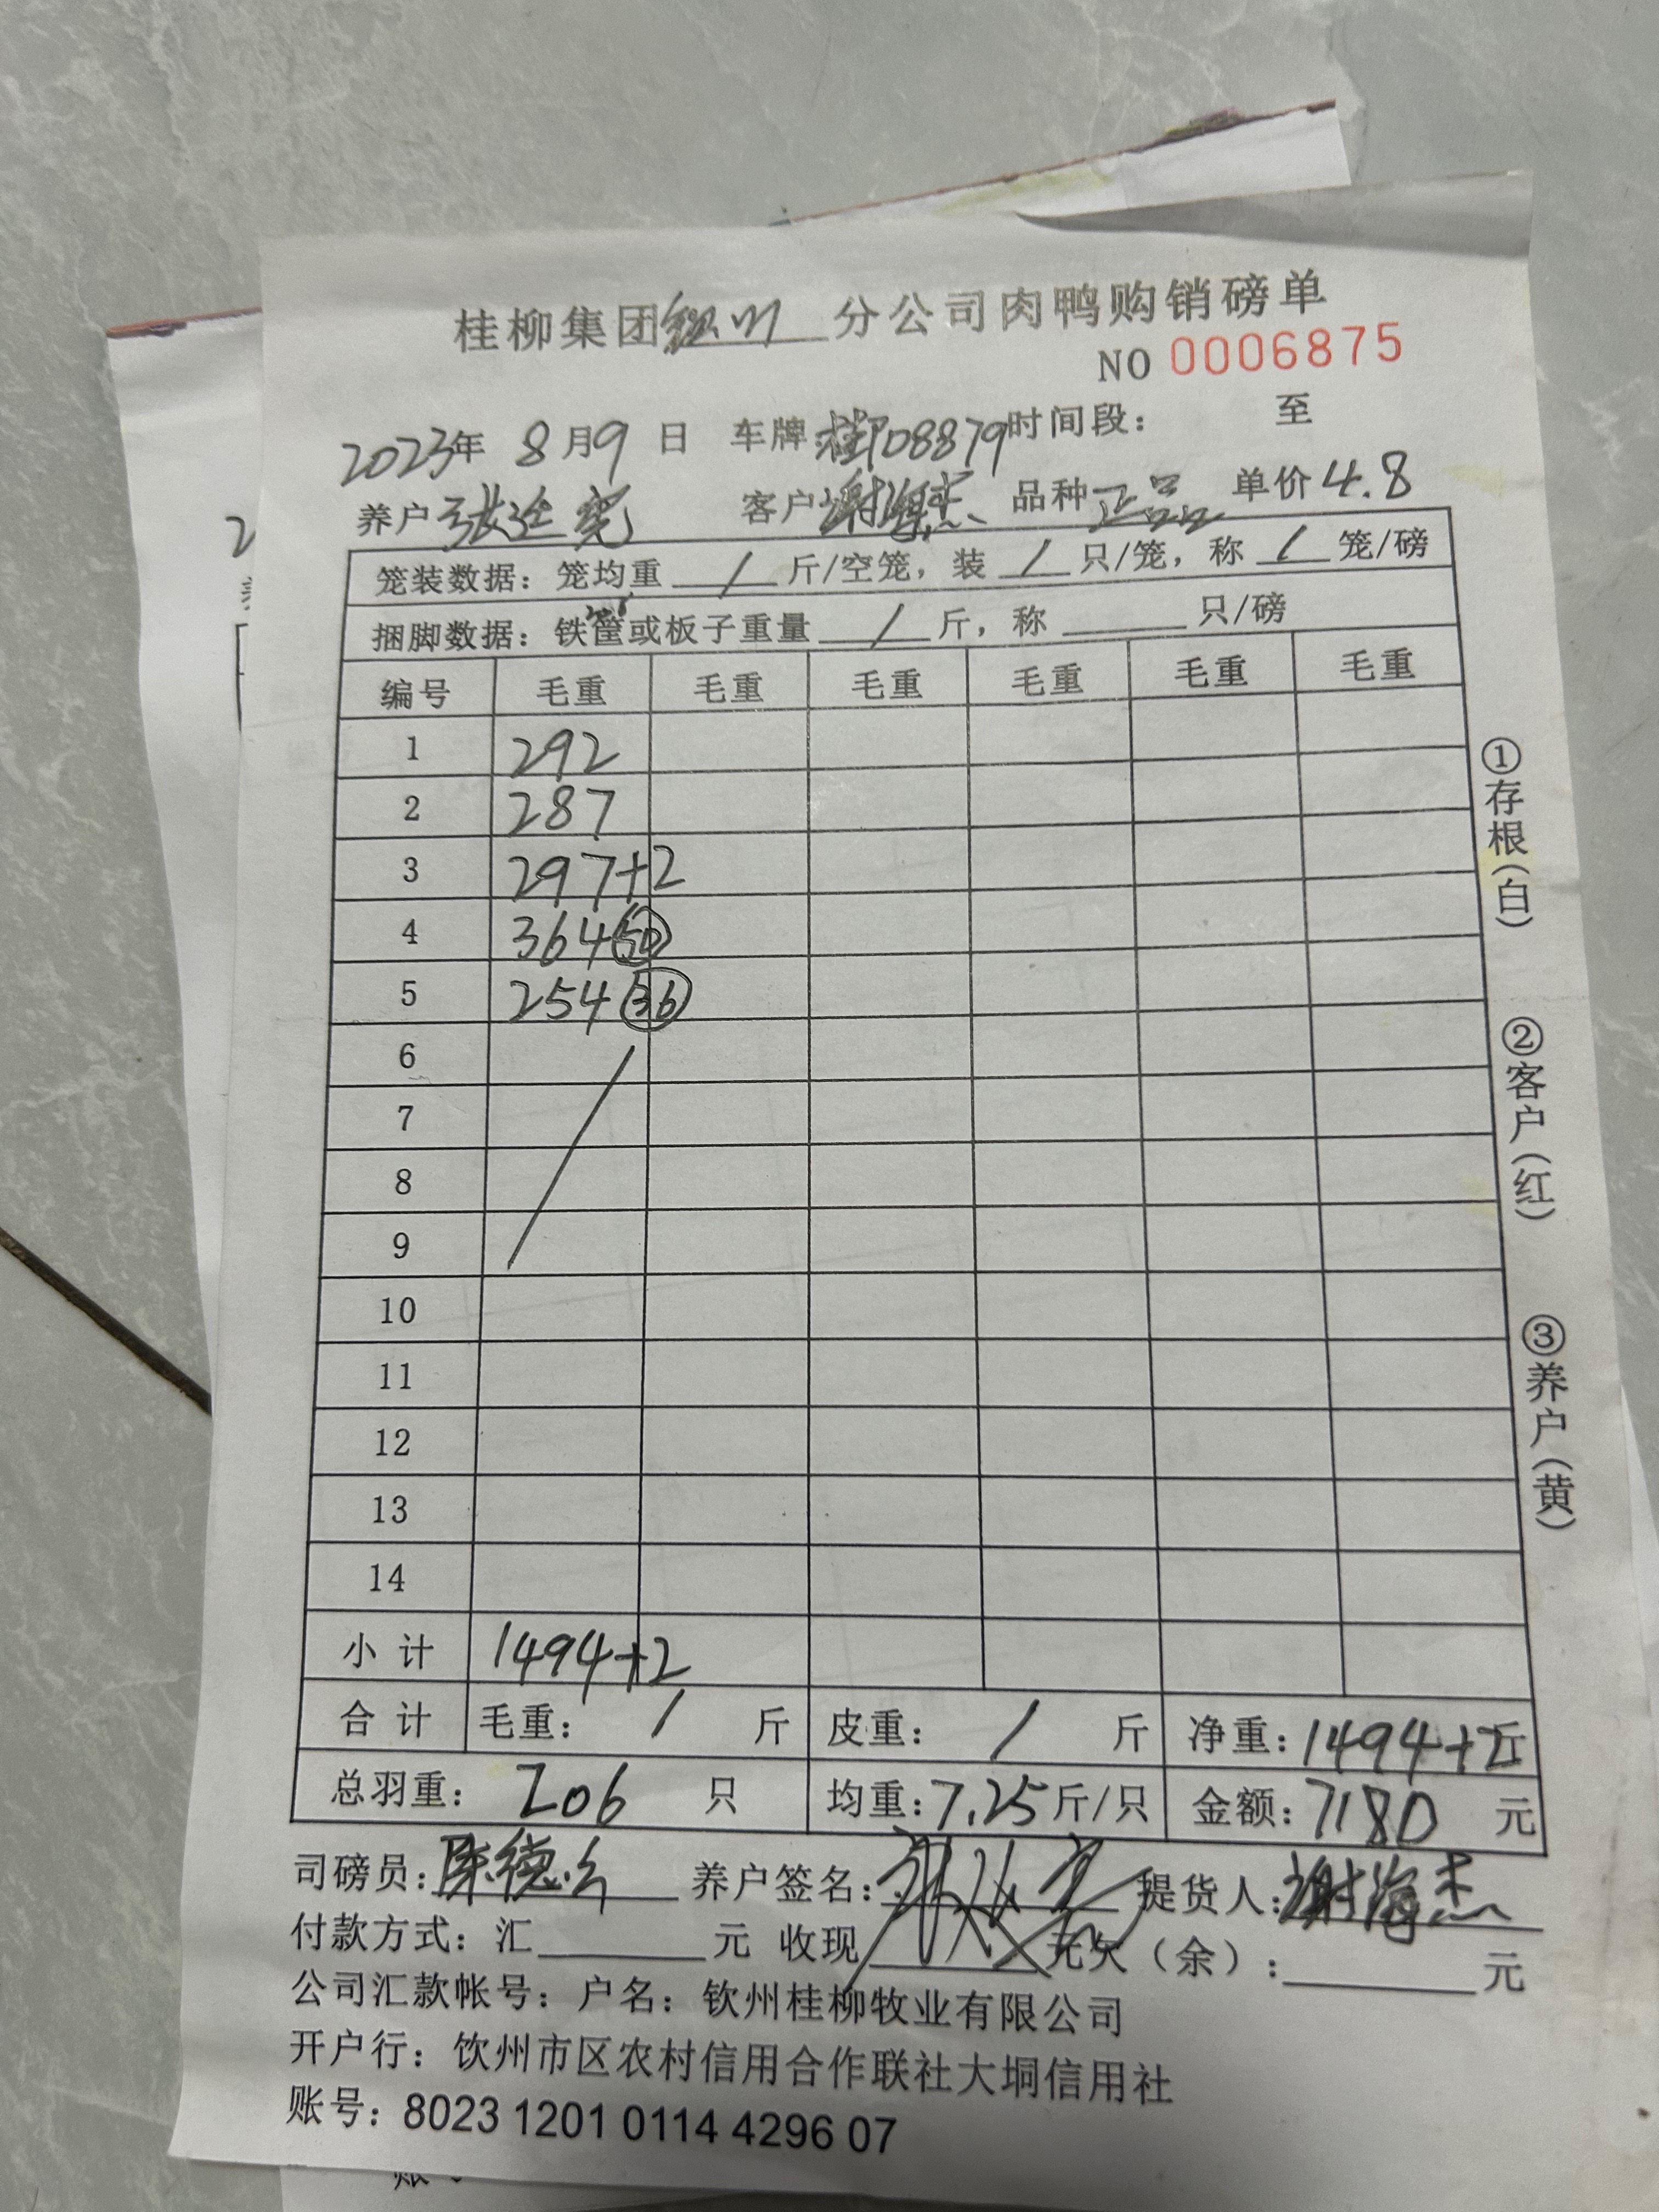 桂柳集团 分公司肉鸭购销磅单
NO 0006875
2023年 8月9日 车牌:桂PD8879 时间段: 至
养户 张 客户 谢海杰 品种 正品 单价 4.8
笼装数据: 笼均重 / 斤/空笼, 装 / 只/笼, 称 / 笼/磅
捆脚数据: 铁筐或板子重量 / 斤, 称 只/磅
编号 毛重 毛重 毛重 毛重 毛重 毛重
1 292
2 287
3 297+2
4 364 50
5 254 36
6
7
8
9
10
11
12
13
14
小计 1494+2
合计 毛重: / 斤 皮重: / 斤 净重: 1494+2斤
总羽重: 206 只 均重: 7.25斤/只 金额: 7180 元
司磅员: 陈德 养户签名: 提货人: 谢海杰
付款方式: 汇 元 收现 元欠(余): 元
公司汇款帐号: 户名: 钦州桂柳牧业有限公司
开户行: 钦州市区农村信用合作联社大垌信用社
账号: 8023 1201 0114 4296 07
①存根(白)
②客户(红)
③养户(黄)